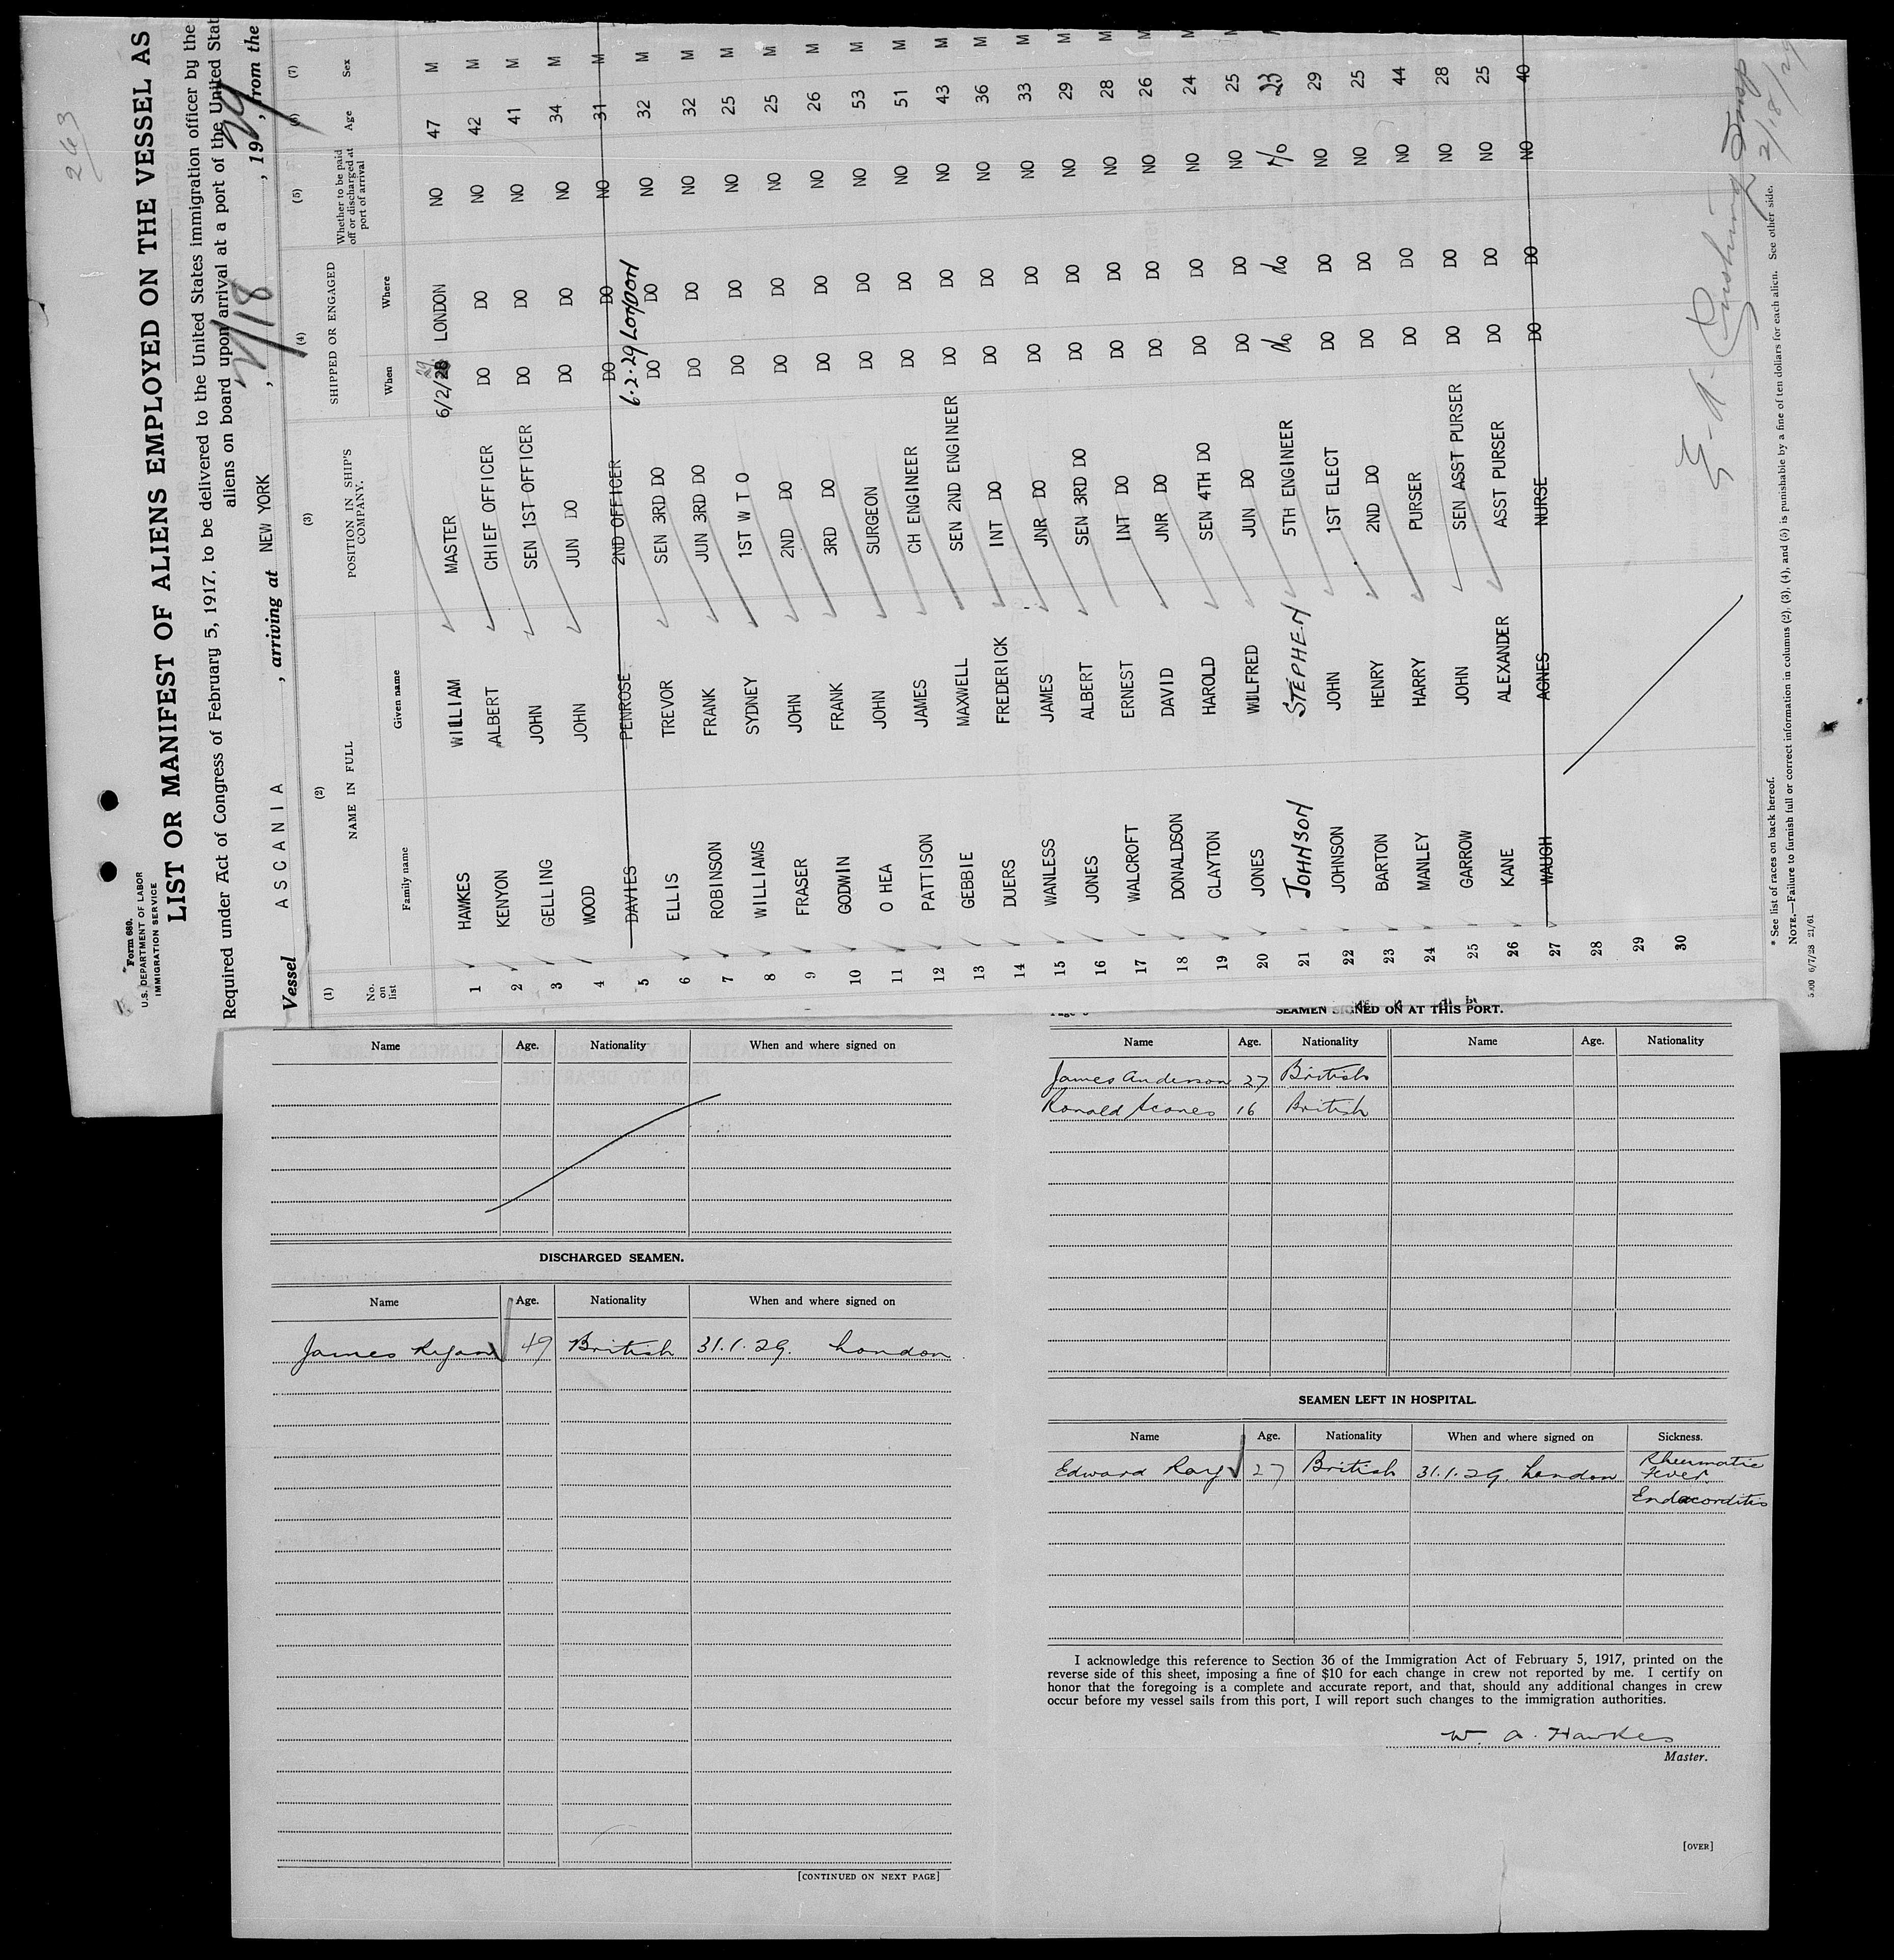 263
Form 680.
U.S. DEPARTMENT OF LABOR
IMMIGRATION SERVICE
LIST OR MANIFEST OF ALIENS EMPLOYED ON THE VESSEL AS
Required under Act of Congress of February 5, 1917, to be delivered to the United States immigration officer by the
aliens on board upon arrival at a port of the United Stat
Vessel ASCANIA, arriving at NEW YORK, 2/18, 1929, from the
(1) (2) (3) (4) (5) (6) (7)
No. on list NAME IN FULL POSITION IN SHIP'S COMPANY. SHIPPED OR ENGAGED Whether to be paid off or discharged at port of arrival Age Sex
Family name Given name When Where
1 HAWKES WILLIAM MASTER 6/2/29 LONDON NO 47 M
2 KENYON ALBERT CHIEF OFFICER DO DO NO 42 M
3 GELLING JOHN SEN 1ST OFFICER DO DO NO 41 M
4 WOOD JOHN JUN DO DO DO NO 34 M
5 DAVIES PENROSE 2ND OFFICER DO DO NO 31 M
6.2.29 LONDON
6 ELLIS TREVOR SEN 3RD DO DO DO NO 32 M
7 ROBINSON FRANK JUN 3RD DO DO DO NO 32 M
8 WILLIAMS SYDNEY 1ST W T O DO DO NO 25 M
9 FRASER JOHN 2ND DO DO DO NO 25 M
10 GODWIN FRANK 3RD DO DO DO NO 26 M
11 O HEA JOHN SURGEON DO DO NO 53 M
12 PATTISON JAMES CH ENGINEER DO DO NO 51 M
13 GEBBIE MAXWELL SEN 2ND ENGINEER DO DO NO 43 M
14 DUERS FREDERICK INT DO DO DO NO 36 M
15 WANLESS JAMES JNR DO DO DO NO 33 M
16 JONES ALBERT SEN 3RD DO DO DO NO 29 M
17 WALCROFT ERNEST INT DO DO DO NO 28 M
18 DONALDSON DAVID JNR DO DO DO NO 26 M
19 CLAYTON HAROLD SEN 4TH DO DO DO NO 24 M
20 JONES WILFRED JUN DO DO DO NO 25 M
21 JOHNSON STEPHEN 5TH ENGINEER do do No 23
22 JOHNSON JOHN 1ST ELECT DO DO NO 29 M
23 BARTON HENRY 2ND DO DO DO NO 25 M
24 MANLEY HARRY PURSER DO DO NO 44 M
25 GARROW JOHN SEN ASST PURSER DO DO NO 28 M
26 KANE ALEXANDER ASST PURSER DO DO NO 25 M
27 WAUGH AGNES NURSE DO DO NO 40
28
29
30
2/18/29
* See list of races on back hereof.
NOTE.—Failure to furnish full or correct information in columns (2), (3), (4), and (5) is punishable by a fine of ten dollars for each alien. See other side.
6/7/28 21/61
Name Age. Nationality When and where signed on
DISCHARGED SEAMEN.
Name Age. Nationality When and where signed on
James Ryan 49 British 31.1.29. London
[CONTINUED ON NEXT PAGE]
SEAMEN SIGNED ON AT THIS PORT.
Name Age. Nationality Name Age. Nationality
James Anderson 27 British
Ronald 16 British
SEAMEN LEFT IN HOSPITAL.
Name Age. Nationality When and where signed on Sickness.
Edward Ray 27 British 31.1.29. London Rheumatic
Fever
Endocorditis
I acknowledge this reference to Section 36 of the Immigration Act of February 5, 1917, printed on the
reverse side of this sheet, imposing a fine of $10 for each change in crew not reported by me. I certify on
honor that the foregoing is a complete and accurate report, and that, should any additional changes in crew
occur before my vessel sails from this port, I will report such changes to the immigration authorities.
W. A. Hawkes
Master.
[OVER]